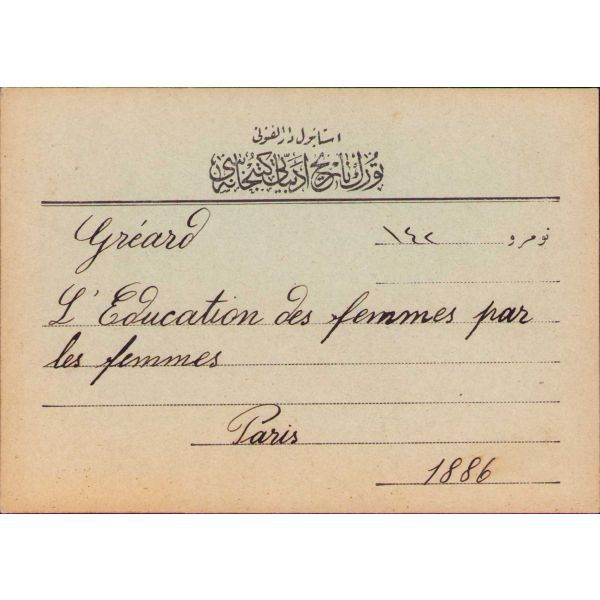 استانبول دار الفنونی
تورك تاریخ ادبیاتی كتبخانه‌سی
Gréard
نومرو ١٤٢
L'Education des femmes par
les femmes
Paris
1886